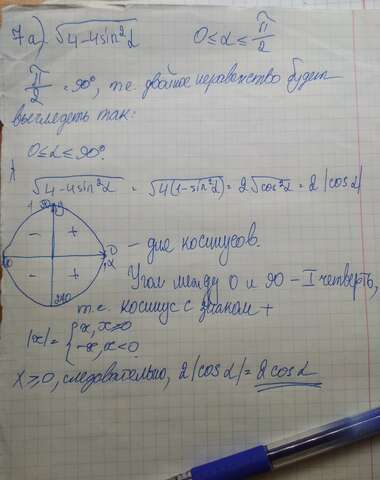 7а) √4-4sin²α 0≤α≤π/2
π/2 = 90°, т.е. двойное неравенство будет
выглядеть так:
0≤α≤90°.
√4-4sin²α = √4(1-sin²α) = 2√cos²α = 2|cosα|
- + 0
- +
x
270
- для косинусов.
Угол между 0 и 90 - I четверть,
т.е. косинус с знаком +
|x| = { x, x≥0
-x, x<0.
x≥0, следовательно, 2|cosα| = 2cosα